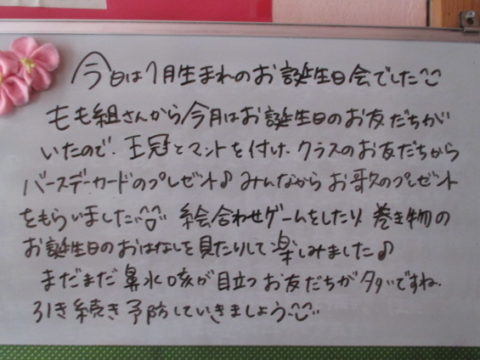 今日は1月生まれのお誕生日会でした
もも組さんから今月はお誕生日のお友だちが
いたので、王冠とマントを付け、クラスのお友だちから
バースデーカードのプレゼント♪みんなからお歌のプレゼント
をもらいました 絵合わせゲームをしたり巻き物の
お誕生日のおはなしを見たりして楽しみました♪
まだまだ鼻水咳が目立つお友だちが多いですね。
引き続き予防していきましょう